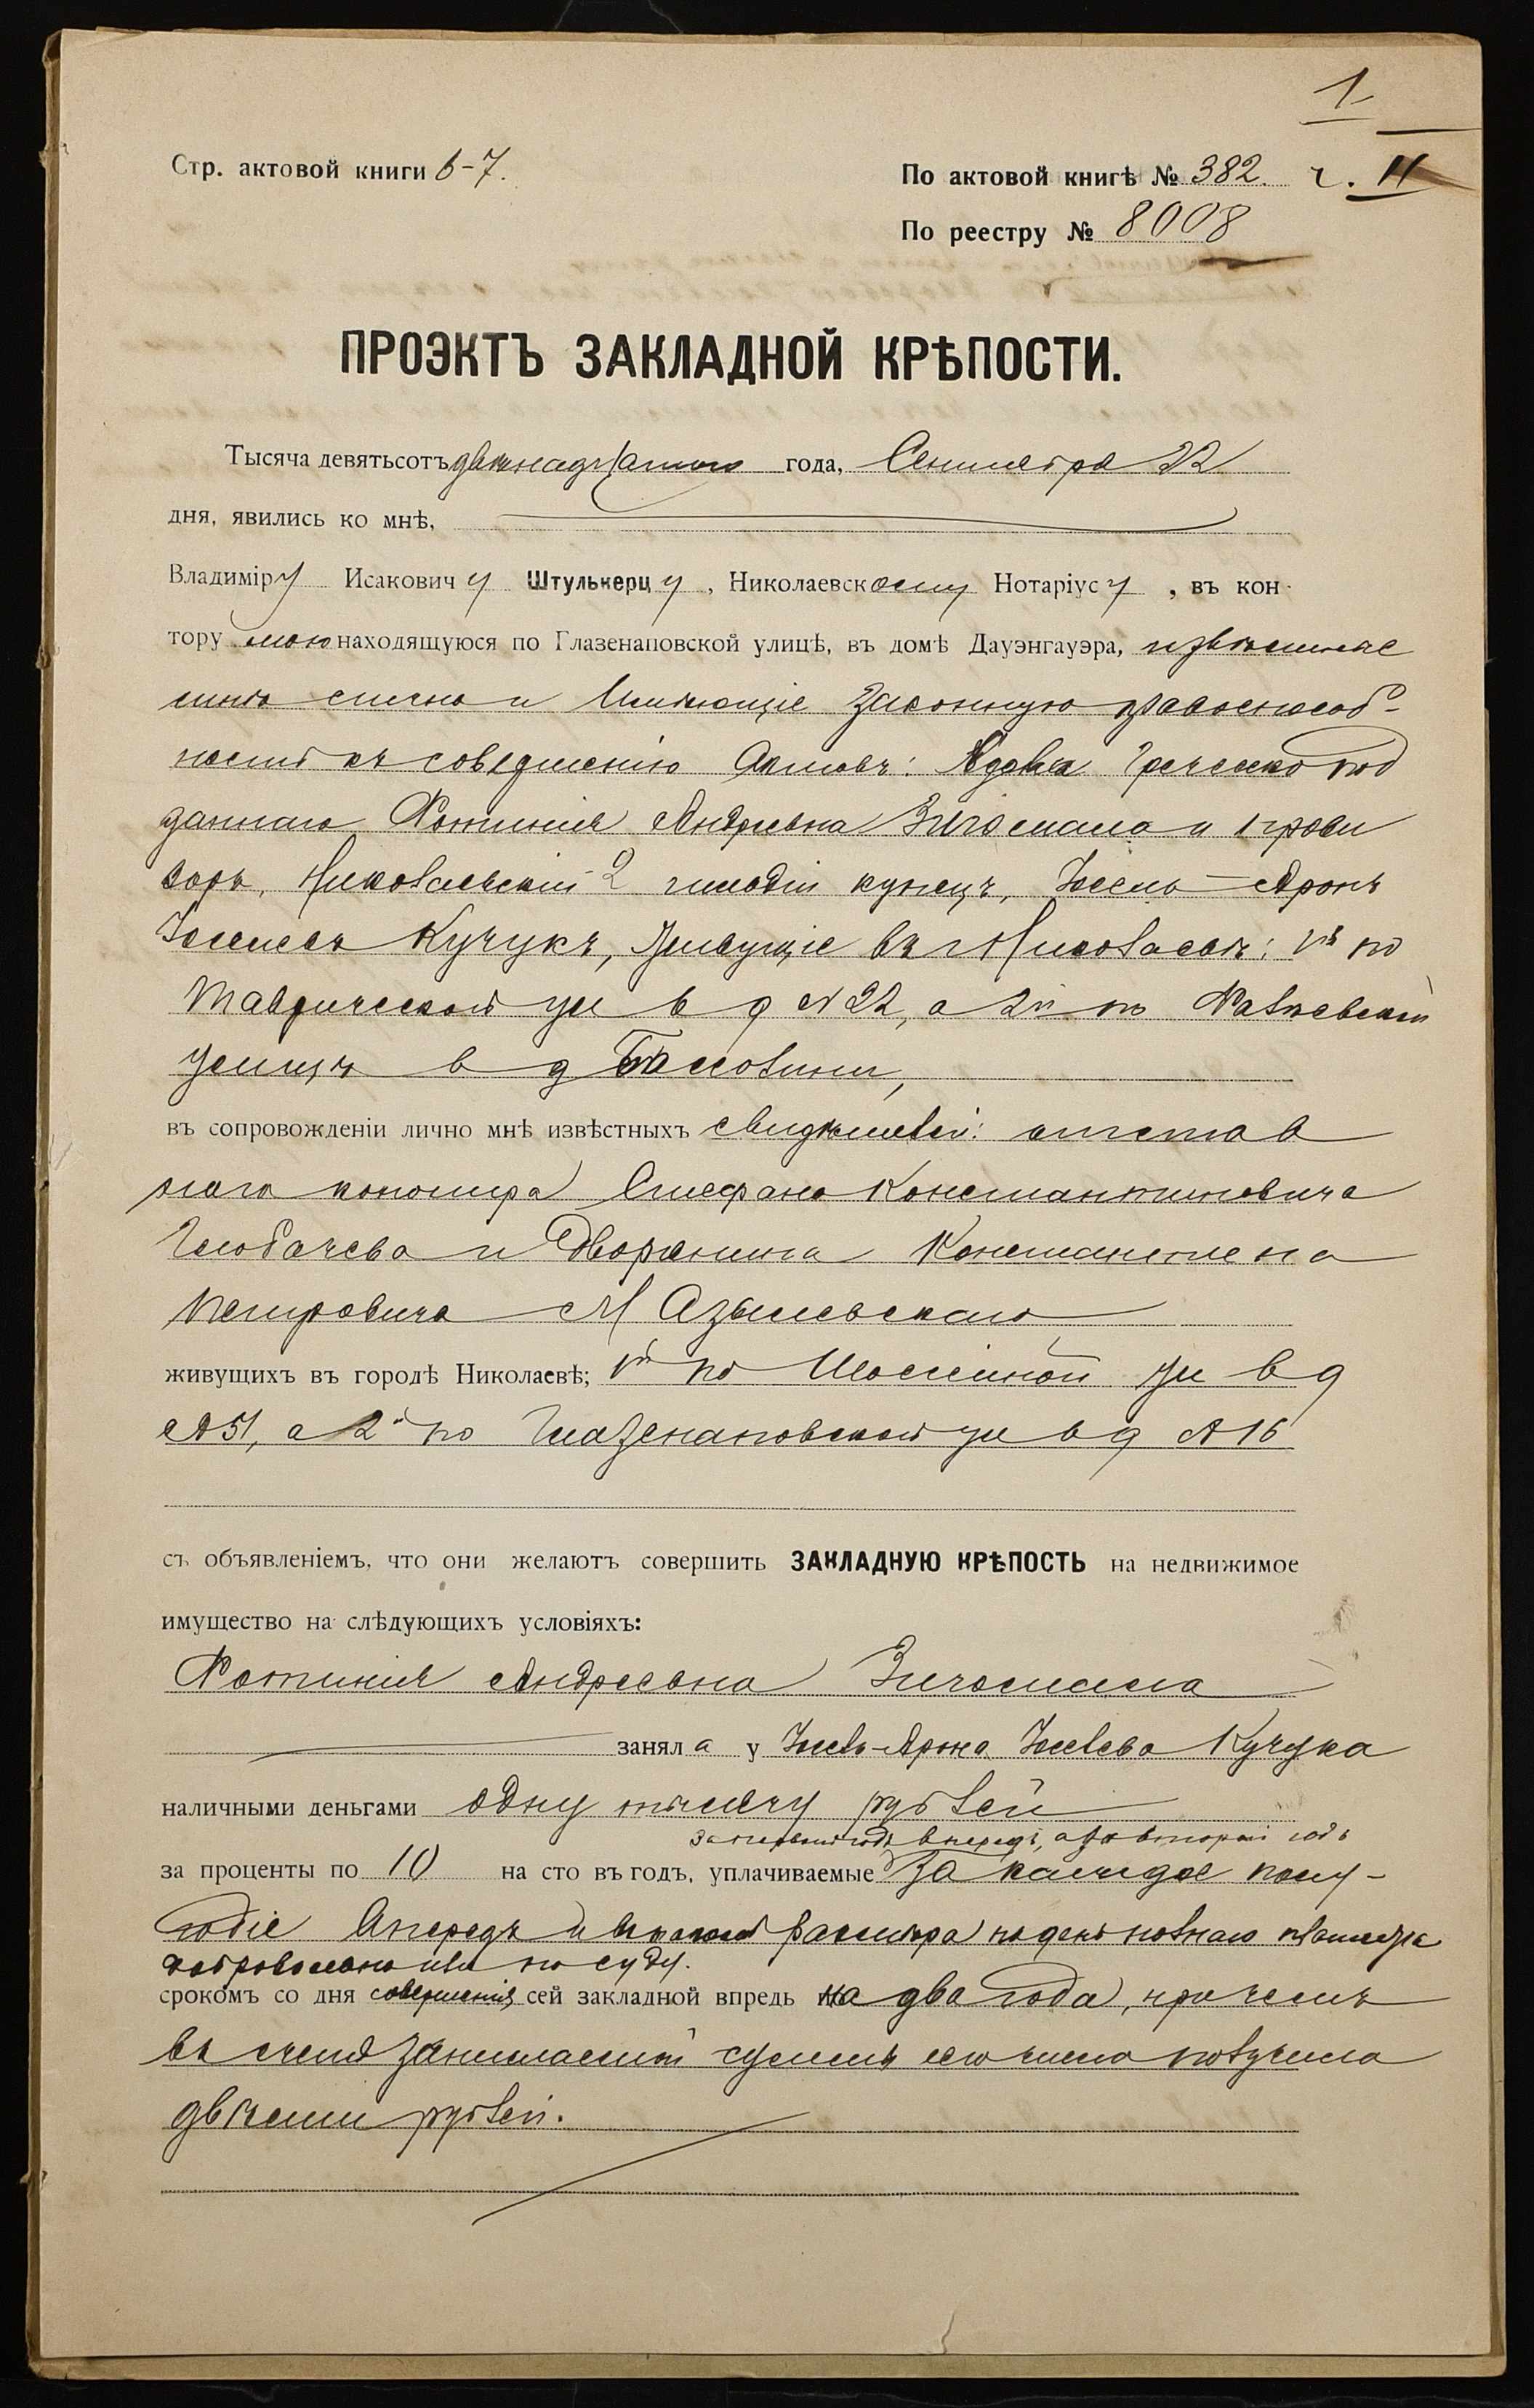 1
Стр. актовой книги 6-7.
По актовой книгѣ № 382. ч. II
По реестру № 8008
ПРОЭКТЪ ЗАКЛАДНОЙ КРѢПОСТИ.
Тысяча девятьсотъ двѣнадцатаго года, Сентября 22
дня, явились ко мнѣ,
Владиміру Исаковичу Штулькерцу, Николаевскому Нотаріусу, въ кон-
тору мою находящуюся по Глазенаповской улицѣ, въ домѣ Дауэнгауэра, извѣстные
мнѣ лично и имѣющіе законную правоспособ-
ность къ совершенію актовъ: Вдова Греческо под
даннаго Фотинія Андреевна Зигомала и прови
зоръ, Николаевскій 2 гильдіи купецъ, Іосель-Аронъ
Іоселевъ Кучукъ, живущіе въ г Николаевѣ: 1я по
Таврической ул въ д № 22, а 2й по
улицѣ въ д
въ сопровожденіи лично мнѣ извѣстныхъ свидѣтелей: отстав
наго Стефана Константиновича
и Дворянина Константина
Петровича
живущихъ въ городѣ Николаевѣ; 1й по ул въ д
№ 51, а 2й по Глазенаповской ул въ д № 16
съ объявленіемъ, что они желаютъ совершить ЗАКЛАДНУЮ КРѢПОСТЬ на недвижимое
имущество на слѣдующихъ условіяхъ:
Фотинія Андреевна Зигомала
заняла у Іосель-Арона Іоселева Кучука
наличными деньгами одну тысячу рублей
за первый годъ впередъ, а за второй годъ
за проценты по 10 на сто въ годъ, уплачиваемые за каждое полу-
годіе впередъ и по день полнаго платежа
добровольно или по суду.
срокомъ со дня совершенія сей закладной впредь на два года, причемъ
въ счетъ занимаемой суммы получила
двѣсти рублей.